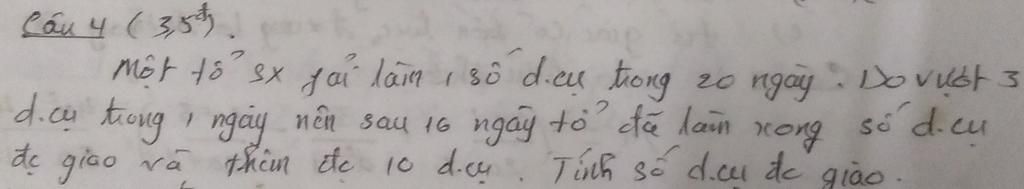 Câu 4 (3,5đ).
Một tổ sx fải làm 1 số d.cụ trong 20 ngày. Do vượt 3
d.cụ trong 1 ngày nên sau 16 ngày tổ đã làm xong số d.cụ
đc giao và thêm đc 10 d.cụ. Tính số d.cụ đc giao.